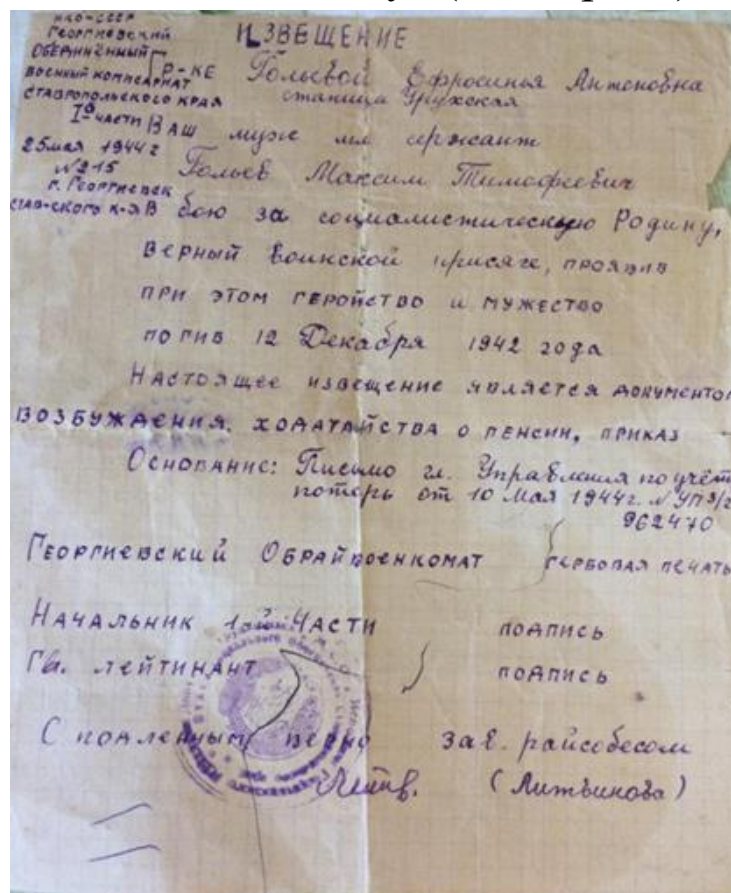 НКО-СССР
ГЕОРГИЕВСКИЙ
ОБЕДИНЁННЫЙ
Р-КЕ
ВОЕННЫЙ КОМИСАРИАТ
СТАВРОПОЛЬСКОГО КРАЯ
Iой ЧАСТИ
25 мая 1944 г
№215
г. ГЕОРГИЕВСК
СТАВ-СКОГО К-Я
ИЗВЕЩЕНИЕ
Гольевой Ефросинья Антоновна
станица Урухская
ВАШ муж мл сержант
Гольев Максим Тимофеевич
В бою за социалистическую Родину,
ВЕРНЫЙ воинской присяге, ПРОЯВИВ
ПРИ ЭТОМ ГЕРОЙСТВО И МУЖЕСТВО
ПОГИБ 12 Декабря 1942 года
НАСТОЯЩЕЕ ИЗВЕЩЕНИЕ ЯВЛЯЕТСЯ ДОКУМЕНТОМ
ВОЗБУЖДЕНИЯ. ХОДАТАЙСТВА О ПЕНСИИ, ПРИКАЗ
ОСНОВАНИЕ: Письмо гл. Управления по учёт
потерь от 10 Мая 1944г. № УПЗ/2
962470
ГЕОРГИЕВСКИЙ ОБРАЙВОЕНКОМАТ ГЕРБОВАЯ ПЕЧАТЬ
НАЧАЛЬНИК 1ой ЧАСТИ ПОДПИСЬ
Гв. ЛЕЙТИНАНТ ПОДПИСЬ
С ПОДЛЕННЫМ ВЕРНО Зав. райсобесом
Литв. (Литвинова)